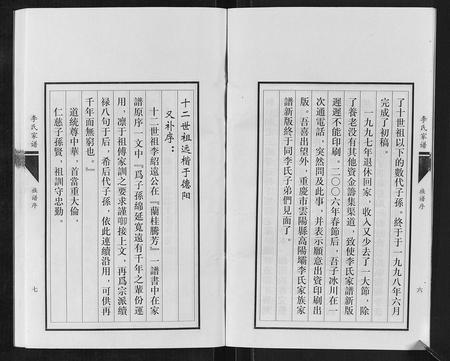 了十世祖以下的数代子孫，终于于一九九八年六月
完成了初稿。
一九九七年退休回家，收入又少去了一大節，除
了養老没有其他资金籌集渠道，致使李氏家譜新版
遲遲不能印刷。二〇〇六年春節后，吾子冰川在一
次通電話，突然問及此事，并表示願意出資印刷出
版。吾喜出望外，重慶市雲陽縣高陽壩李氏家族家
譜新版終于同李氏子弟們見面了。
李氏家譜
族譜序
六
十二世祖远楷于德阳
又补序：
十二世祖李紹遠公在『蘭桂騰芳』一譜書中在家
譜原序一文中『爲子孫綿延寬遠有千年之輩份運
用，凛于祖傅家訓之要求謹啣接上文，再爲宗派續
禄八句于后，希后代子孫，依此連續沿用，可供再
千年而無窮也。』
道統尊中華，首當重大倫，
仁慈子孫賢，祖訓守忠勤。
李氏家譜
族譜序
七